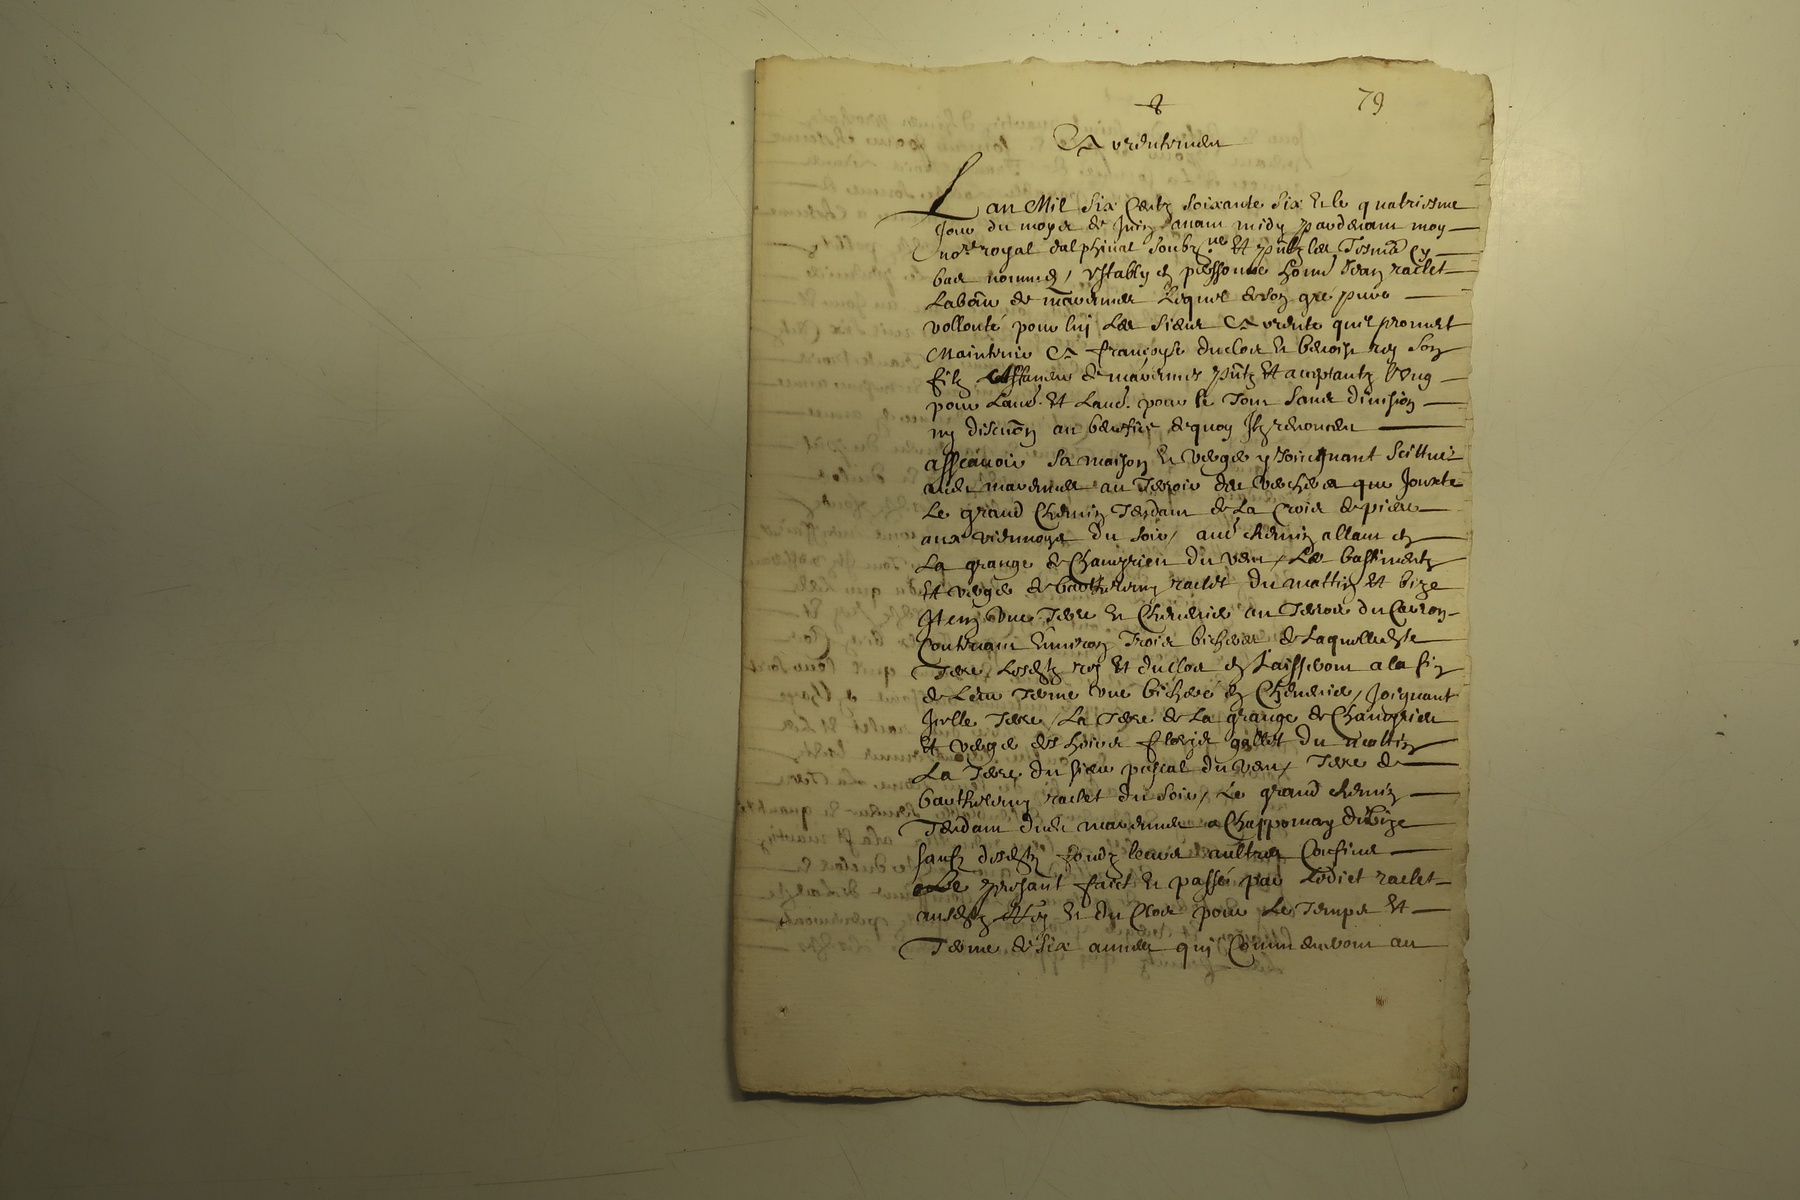 79
Arrentement
L an Mil Six Centz Soixante Six et le quatriesme
Jour du moys de Juing avant midy pardevant moy
no.re royal dalphinal soubz.ne et pntz les Tesmā Cy
bas nommés / estably en personne honn Jean raclet
Labōur de mavernes Lequel de son gré pure
vollonté pour luy Les Siens A rente quil promect
Maintenir A françoyse duclos et benoist rey son
filz de mavernes pntz et acceptantz l'ung
pour Laud. et Laud. pour le Tout Sans division
ny discuōn au beneffice de quoy Ilz renoncent
assçavoir Sa maison et verger y Joingnant Scittué
aud mavernes au Terroir des verchères que Jouxte
Le grand Chemin Tendant de La Croix de piere
aux viennoyes du soir / aud chemin allant en
La grange de Chandieu du vent / Les bastimentz
et verger de barthelemy raclet du mattin et bize
Item une Terre et Cheneviere au Terroir du
Contenant Environ Trois bicherées de Laquelle dte
Terre Lesdtz rey et duclos en Laisseront a la fin
de Leur Terme une bicherée en Cheneviere / Joignant
Icelle Terre / La Terre de La grange de Chandieu
et verger des hoirs gallet du mattin
La Terre du sieur pascal du vent / Terre de
barthelemy raclet du Soir / Le grand chemin
Tendant dudt mavernes a Chapponnay du bize
saufz desdtz fondz leurs aultres Confins
Le présant faict et passé par Ledict raclet
ausdtz Rey et du Clos pour Le Temps et
Terme de Six années quj Commenceront au